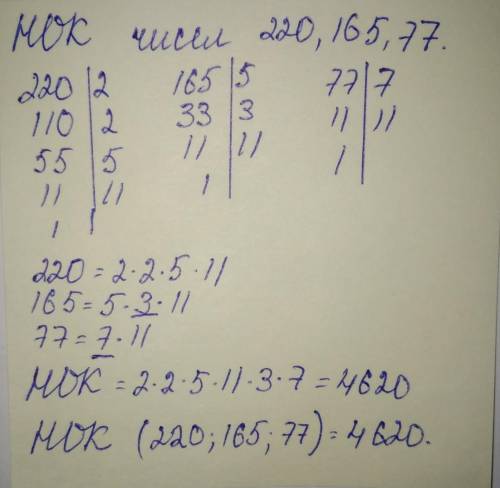 НОК чисел 220, 165, 77.
220 | 2 165 | 5 77 | 7
110 | 2 33 | 3 11 | 11
55 | 5 11 | 11 1
11 | 11 1
1
220 = 2 · 2 · 5 · 11
165 = 5 · 3 · 11
77 = 7 · 11
НОК = 2 · 2 · 5 · 11 · 3 · 7 = 4620
НОК (220; 165; 77) = 4620.